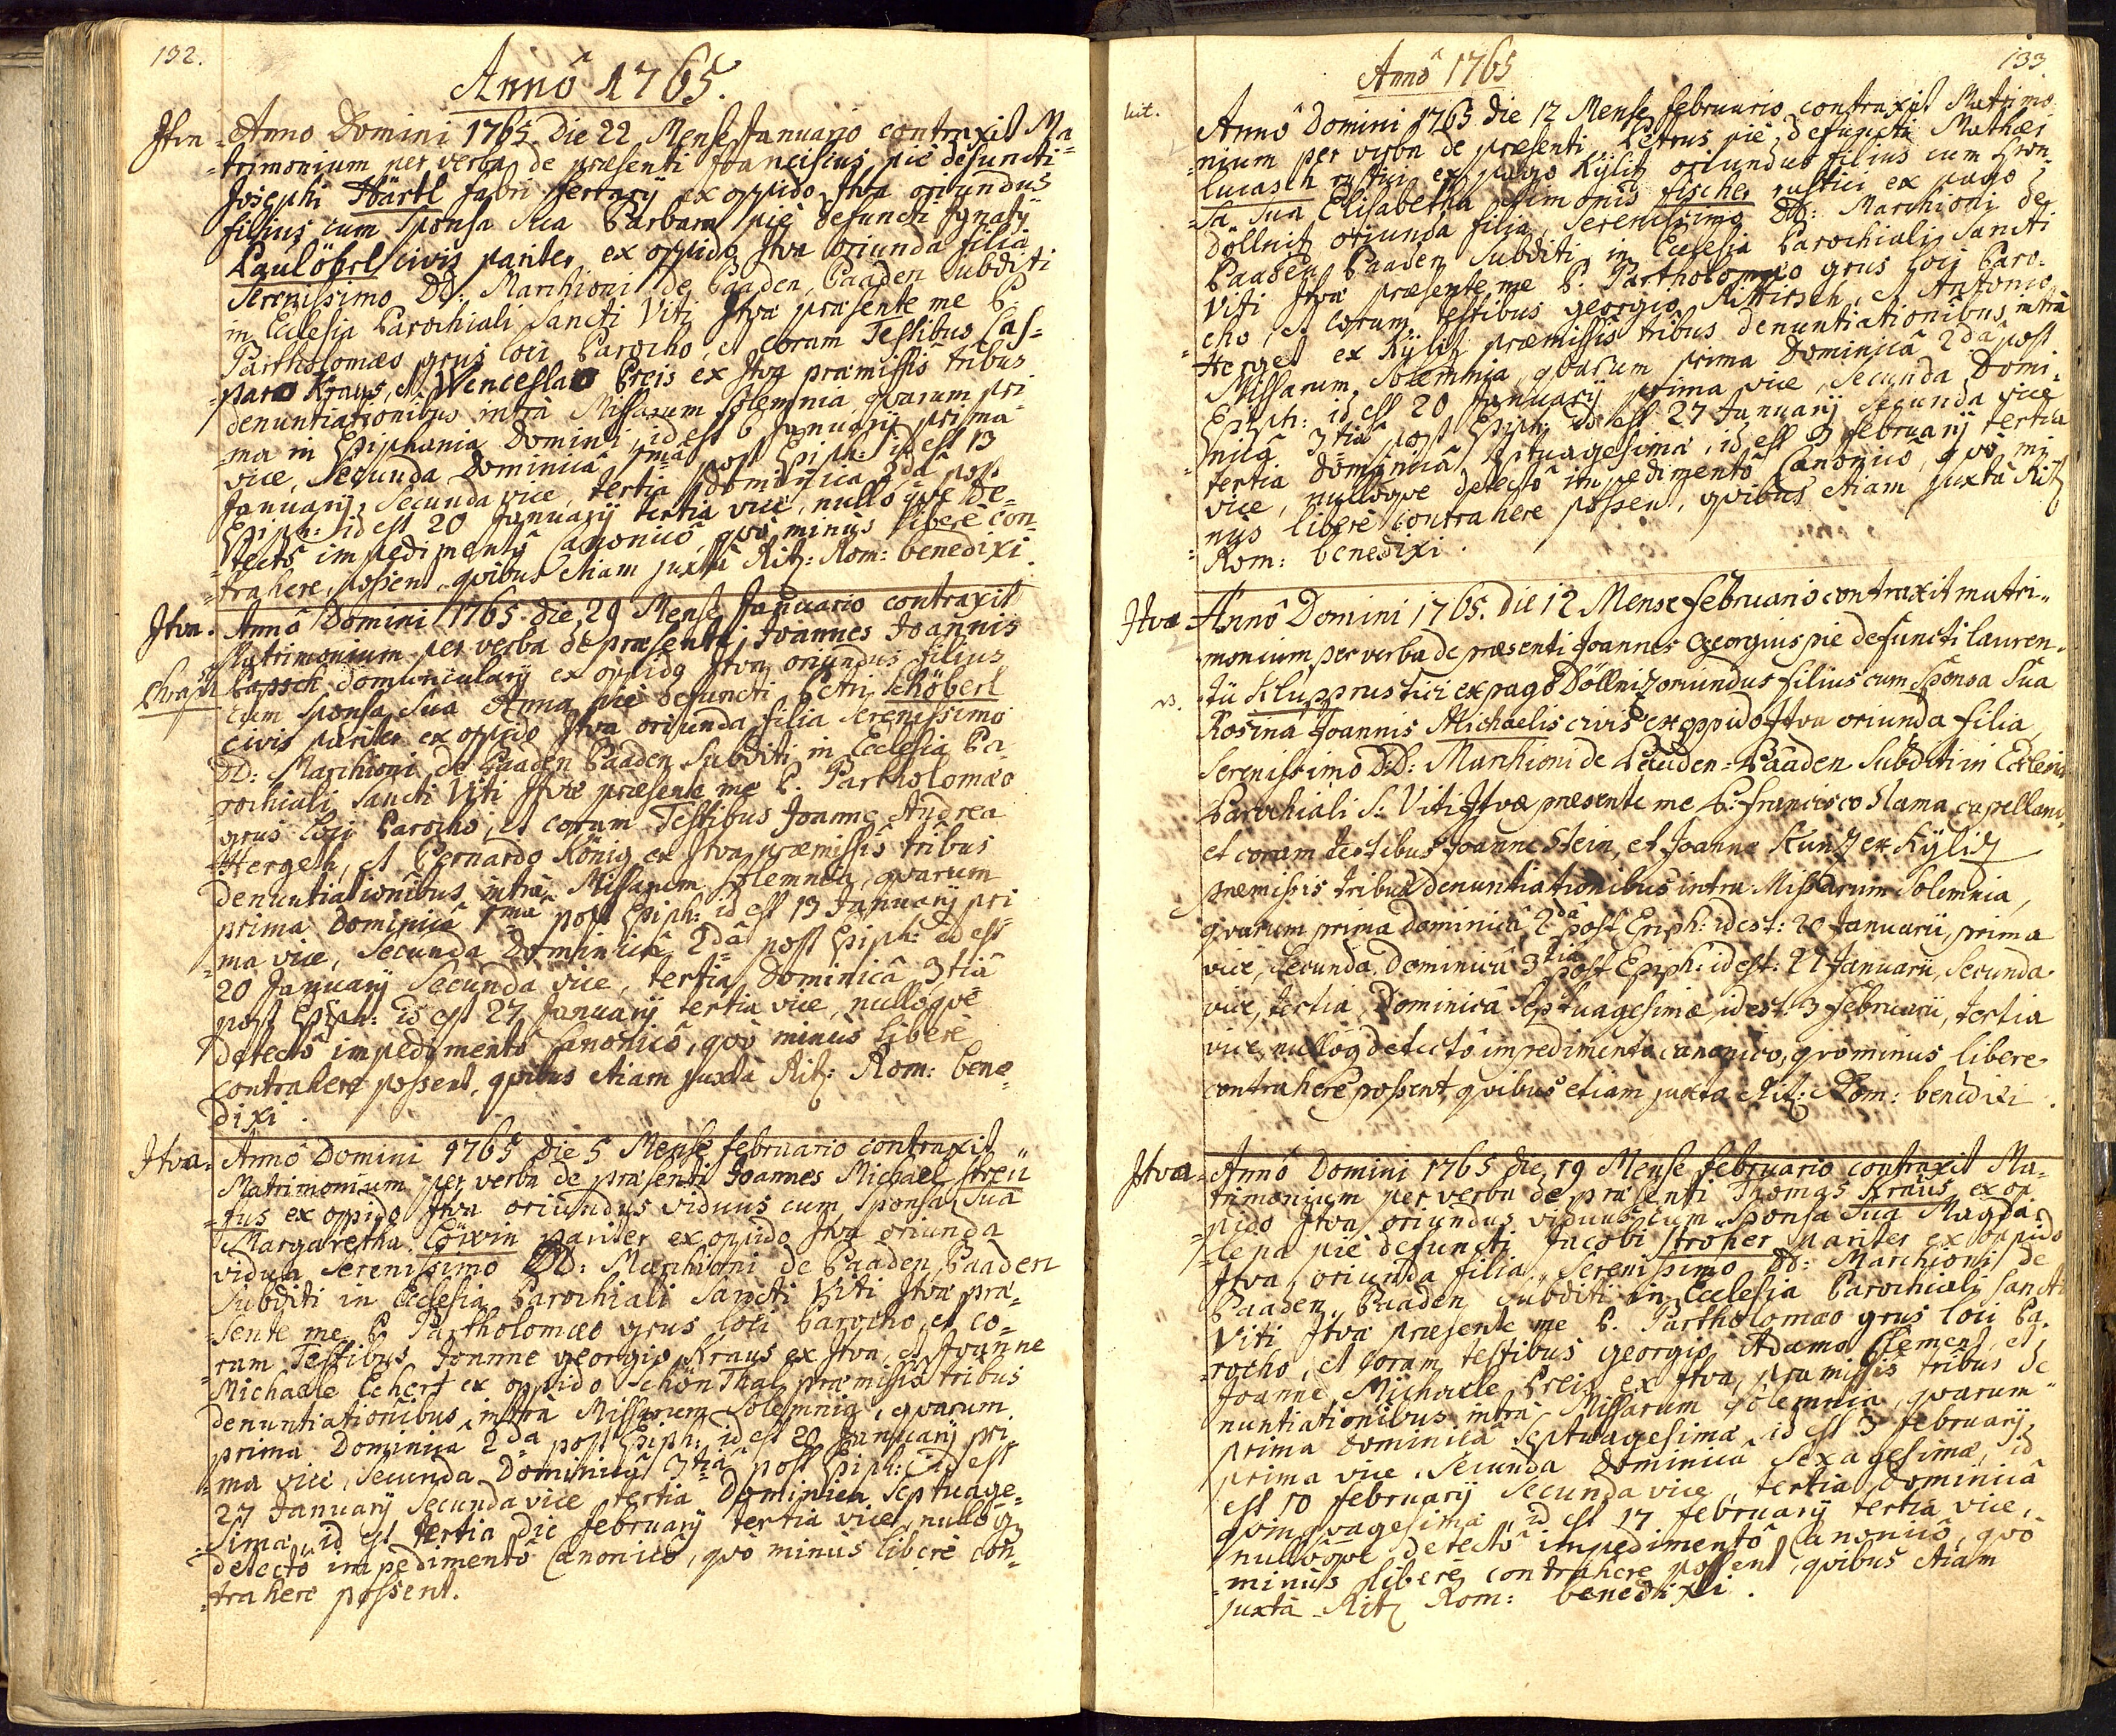 132.
Annô 1765.
Itva Anno Domini 1765. Die 22 Mense Januario contraxit Ma=
=trimonium per verba de præsenti Franciscus piè defuncti
Josephi Härtl fabri ferrarij ex oppido Itva oriundus
filius cum Sponsa sua Barbara piè defuncti Ignatij
Paulöhrl civis pariter ex oppido Itva oriunda filia
Serenissimo DD: Marchioni de Baaden Baaden Subditi
in Ecclesia Parochiali Sancti Viti Itvæ præsente me P.
Bartholomæo grus loci Parocho, et coram Testibus Cas=
=paro Kraus, et Wenceslao Preis ex Itva præmissis tribus
denuntiationibus intrà Missarum solemnia, quarum pri
=ma in Epiphania Domini, id est 6 Januarij prima
vice, Secunda Dominicâ 1mâ post Epiph: id est 13
Januarij Secunda vice, tertia Dominica 2dâ post
Epiph: id est 20 Januarij tertia vice, nullôqve de=
=tectô impedimentô Canonicô, qvô minùs liberè con=
=trahere possent, qvibus etiam juxtà Rit: Rom: benedixi.
Itva. Annô Domini 1765. die 29 Mense Januario contraxit
Matrimonium per verba de præsenti Joannes Joannis
Papsch domuncularij ex oppido Itva oriundus filius
cum Sponsa Sua Anna piè defuncti Petri Schöberl
civis pariter ex oppido Itva oriunda filia Serenissimo
DD: Marchioni de Baaden Baaden Subditi in Ecclesia Pa
rochiali Sancti Viti Itvæ præsente me P. Bartholomæo
grus loci Parocho, et coram Testibus Joanne Andrea
Hergeth, et Bernardo König ex Itva præmissis tribus
denuntiationibus intrà Missarum solemnia, qvarum
prima Dominicâ 1mâ post Epiph: id est 13 Januarij pri
=ma vice, Secunda Dominicâ 2dâ post Epiph: id est
20 Januarij Secunda vice, tertia Dominicâ 3tiâ
post Epiph: id est 27 Januarij tertia vice, nullôqve
detectô impedimentô Canonicô, qvô minùs liberè
contrahere possent, qvibus etiam juxtà Rit: Rom: bene=
dixi.
Itva. Annô Domini 1765 die 5 Mense februario contraxit
Matrimonium per verba de præsenti Joannes Michael Streü
=fus ex oppido Itva oriundus viduus cum Sponsa Sua
Margaretha Löwin pariter ex oppido Itva oriunda
vidua Serenissimo DD: Marchioni de Baaden Baaden
Subditi in Ecclesia Parochiali Sancti Viti Itvæ præ=
=sente me P. Bartholomæo grus loci Parocho, et co=
=ram Testibus Joanne georgio Kraus ex Itva, et Joanne
Michaele Echert ex oppido Schön Thal præmissis tribus
denuntiationibus intrà Missarum Solemnia, qvarum
prima Dominicâ 2dâ post Epiph: id est 20 Januarij pri=
=ma vice, Secunda Dominicâ 3tiâ post Epiph: id est
27 Januarij Secunda vice tertia Dominica Septuage=
=sima, id est tertia die februarij tertia vice, nullôq
detectô impedimentô Canonicô, qvô minùs liberè con=
=trahere possent.
133
Annô 1765
Annô Domini 1765 die 12 Mense februario contraxit Matrimo
=nium per verba de præsenti Petrus piè defuncti Mathæi
Lucasch rustici ex pago Kÿlitz oriundus filius cum Spon=
=sa Sua Elisabetha Simonis fischer rustici ex pago
Döllnitz oriunda filia, Serenissimo DD: Marchioni de
Baaden Baaden Subditi in Ecclesia Parochiali Sancti
Viti Itvæ præsente me P. Bartholomæo grus loci Paro=
=cho, et coram testibus georgio Kittirsch, et Antonio
Herget ex Kÿlitz præmissis tribus denuntiationibus intrà
Missarum Solemnia, qvarum prima Dominicâ 2dâ post
Epiph: id est 20 Januarij prima vice, Secunda Domi=
nicâ 3tiâ post Epiph: id est 27 Januarij Secunda vice
tertia Dominicâ Septuagesima, id est 3 februarij tertia
vice, nullôqve detectô impedimentô Canonicô, qvô mi
nùs liberè contrahere possent, qvibus etiam juxtà Rit
Rom: benedixi.
Itva Annô Domini 1765. die 12 Mense februario contraxit matri=
monium per verba de præsenti Joannes Georgius pie defuncti lauren=
tii Klupp rustici ex pago Döllnitz oriundus filius cum Sponsa Sua
Rosina Joannis Michaelis civis ex oppido Itva oriunda filia,
Serenissimo DD: Marchioni de Baaden=Baaden Subditi in Ecclesia
Parochiali S: Viti Itvæ præsente me P: Francisco Slama capellano,
et coram testibus Joanne Stein, et Joanne Kuntz ex Kÿlitz
præmissis tribus denuntiationibus intra Missarum Solemnia,
qvarum prima dominicâ 2dâ post Epiph: id est: 20 Januarii, prima
vice, Secunda Dominicâ 3tiâ post Epiph: id est: 27 Januarii, Secunda
vice, tertia, Dominicâ Septuagesimæ id est: 3 februarii, tertia
vice, nullôq detectô impedimento canonico, qvominus libere
contrahere possent, qvibus etiam juxta Rit: Rom: benedixi.
Itva Annô Domini 1765 die 19 Mense februario contraxit Ma=
trimonium per verba de præsenti Thomas Kraus ex op=
pido Itva oriundus viduus cum Sponsa Sua Magda=
=lena piè defuncti Jacobi Stroher pariter ex oppido
Itva oriunda filia, Serenissimo DD: Marchioni de
Baaden Baaden Subditi in Ecclesia Parochiali Sancti
Viti Itvæ præsente me P. Bartholomæo grus loci Pa=
=rocho, et coram testibus georgio Adamo Clement, et
Joanne Michaele Preis ex Itva, præmissis tribus de
nuntiationibus intrà Missarum Solemnia, qvarum
prima Dominicâ Septuagesima, id est 3 februarij
prima vice, Secunda Dominicâ Sexagesimæ, id
est 10 februarij Secunda vice, tertia Dominicâ
qvinqvagesima, id est 17 februarij tertia vice,
nullôqve detectô impedimentô Canonicô, qvô
minùs liberè contrahere possent, qvibus etiam
juxtà Rit Rom: benedixi.